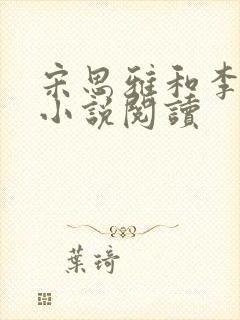 宋思雅和李
小說閱讀
葉琦